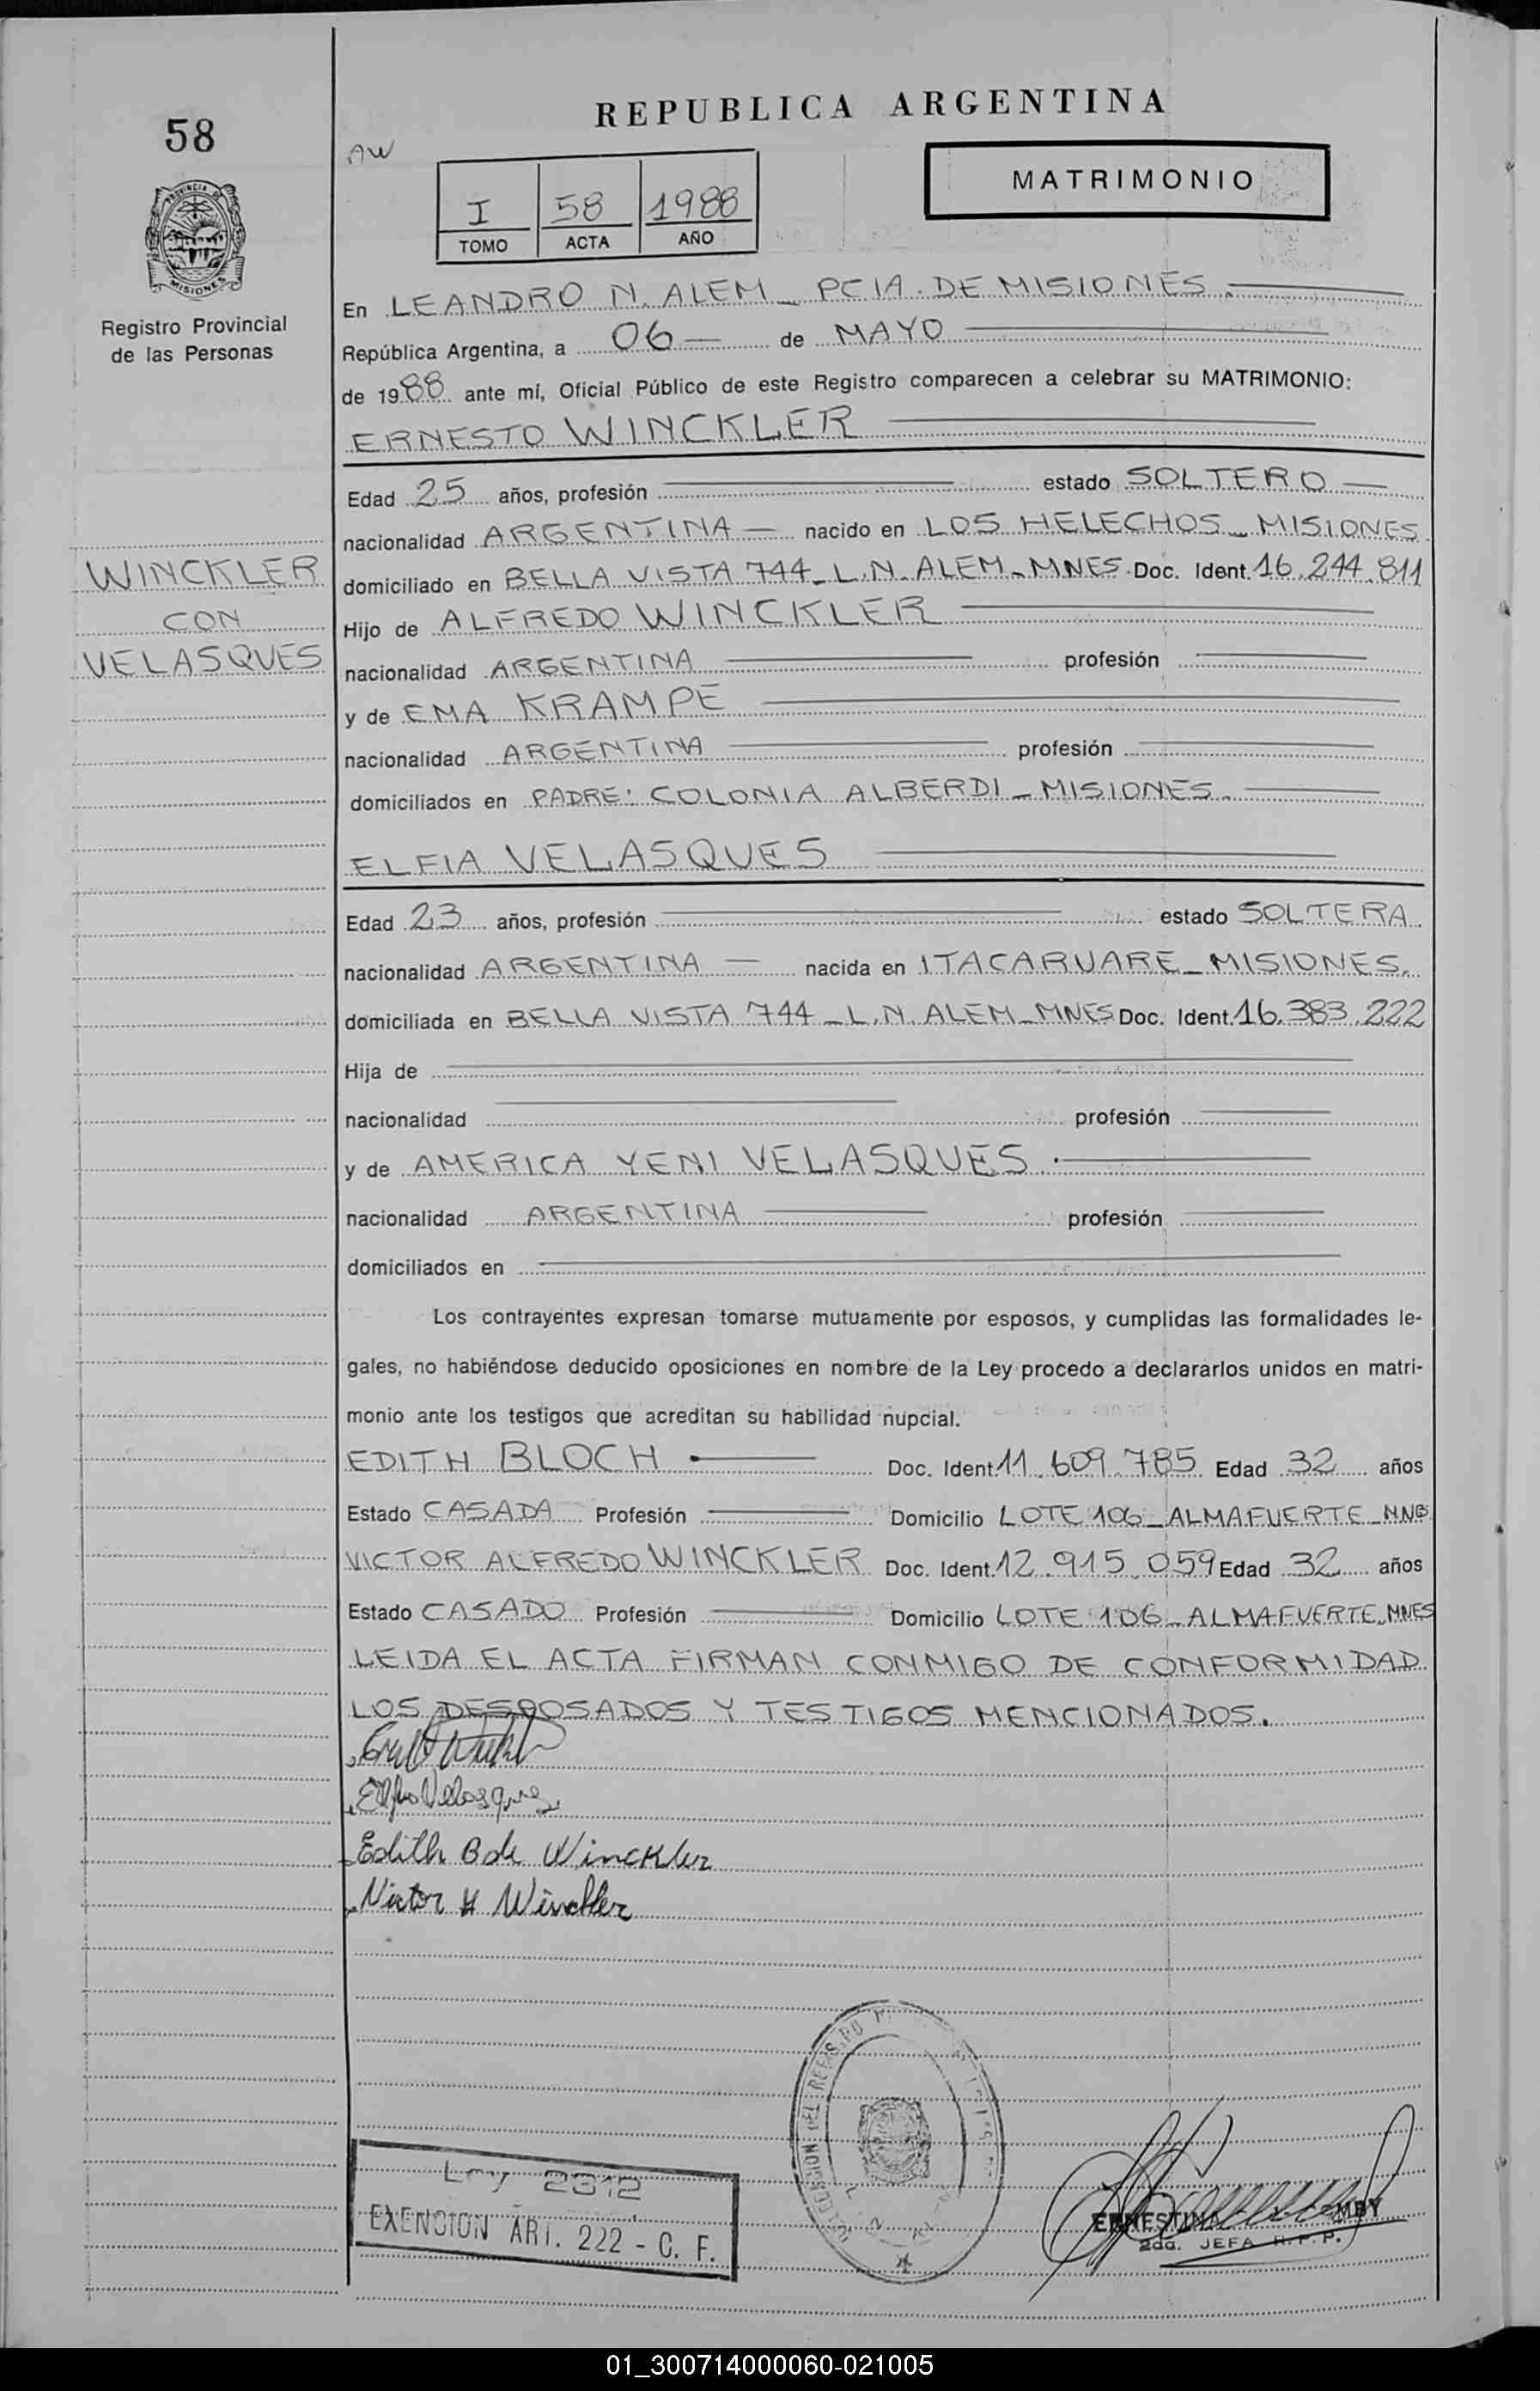 REPUBLICA ARGENTINA
58
AW
MATRIMONIO
I 58 1988
TOMO ACTA AÑO
PROVINCIA DE
MISIONES
Registro Provincial
de las Personas
En LEANDRO N. ALEM _ PCIA. DE MISIONES.
República Argentina, a 06 de MAYO
de 1988 ante mí, Oficial Público de este Registro comparecen a celebrar su MATRIMONIO:
ERNESTO WINCKLER
Edad 25 años, profesión estado SOLTERO
nacionalidad ARGENTINA nacido en LOS HELECHOS _ MISIONES
WINCKLER
CON
VELASQUES
domiciliado en BELLA VISTA 744 _ L.N. ALEM _ MNES. Doc. Ident. 16.244.811
Hijo de ALFREDO WINCKLER
nacionalidad ARGENTINA profesión
y de EMA KRAMPE
nacionalidad ARGENTINA profesión
domiciliados en PADRE: COLONIA ALBERDI _ MISIONES.
ELFIA VELASQUES
Edad 23 años, profesión estado SOLTERA
nacionalidad ARGENTINA nacida en ITACARUARE _ MISIONES.
domiciliada en BELLA VISTA 744 _ L.N. ALEM _ MNES Doc. Ident. 16.383.222
Hija de
nacionalidad profesión
y de AMERICA YENI VELASQUES.
nacionalidad ARGENTINA profesión
domiciliados en
Los contrayentes expresan tomarse mutuamente por esposos, y cumplidas las formalidades le-
gales, no habiéndose deducido oposiciones en nombre de la Ley procedo a declararlos unidos en matri-
monio ante los testigos que acreditan su habilidad nupcial.
EDITH BLOCH Doc. Ident. 11.609.785 Edad 32 años
Estado CASADA Profesión Domicilio LOTE 106 _ ALMAFUERTE _
VICTOR ALFREDO WINCKLER Doc. Ident. 12.915.059 Edad 32 años
Estado CASADO Profesión Domicilio LOTE 106 _ ALMAFUERTE _ MNES
LEIDA EL ACTA FIRMAN CONMIGO DE CONFORMIDAD
LOS DESPOSADOS Y TESTIGOS MENCIONADOS.
Elfia Velasques
Edith B de Winckler
Victor A Winckler
Ley 2312
EXENCION ART. 222 - C. F.
ERNESTINA
2da. JEFA R. P. P.
01_300714000060-021005